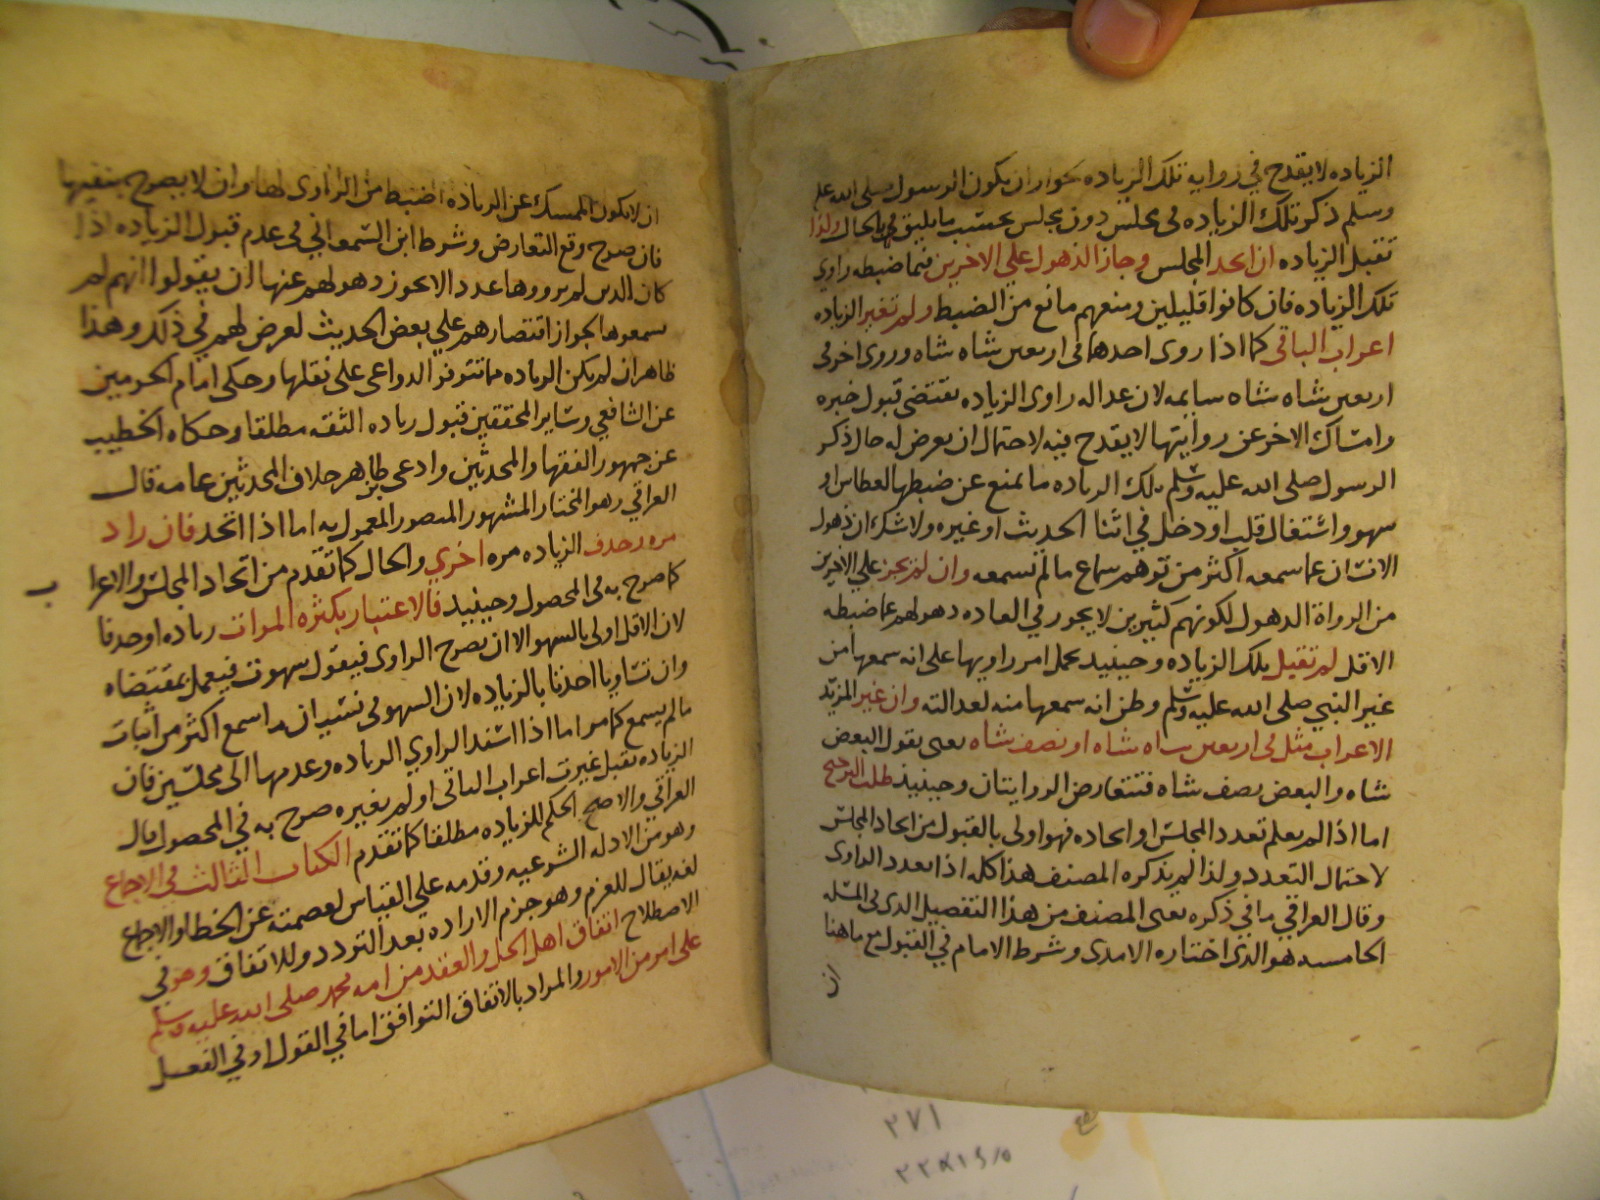 الزياده لا يقدح في روايه تلك الزياده لجواز ان يكون الرسول صلى الله علم
وسلم ذكر تلك الزياده في مجلس دون مجلس بحسب ما يليق بالحال ولذا
تقبل الزياده ان اتحد المجلس وجاز الذهول علي الاخرين فيما ضبطه راوي
تلك الزياده فان كانوا قليلين ومنعهم مانع من الضبط ولم تغير الزياده
اعراب الباقي كما اذا روى احدهما في اربعين شاه شاه وروى اخر في
اربعين شاه شاه سايمه لان عداله راوى الزياده تقتضي قبول خبره
وامساك الاخر عن روايتها لا يقدح فيه لاحتمال ان يعرض له حال ذكر
الرسول صلى الله عليه وسلم تلك الزياده ما يمنع عن ضبطها لعطاس او
سهو واشتغال قلب او دخل في اثنا الحديث او غيره ولا شك ان ذهول
الانسان عما سمعه اكثر من توهم سماع ما لم يسمعه وان لم يجز علي الاخرين
من الرواة الذهول لكونهم كثيرين لا يجوز في العاده ذهولهم عما ضبطه
الاقل لم تقبل تلك الزياده وحينيد يحمل امر راويها على انه سمعها من
غير النبي صلى الله عليه وسلم وظن انه سمعها منه لعدالته وان غير المزيد
الاعراب مثل في اربعين شاه شاه او نصف شاه يعني يقول البعض
شاه والبعض نصف شاه فتتعارض الروايتان وحينيذ طلب الترجيح
اما اذا لم يعلم تعدد المجلس او اتحاده فهو اولى بالقبول من اتحاد المجلس
لاحتمال التعدد ولذا لم يذكره المصنف هذا كله اذا تعدد الراوى
وقال العراقي ما في ذكره يعنى المصنف من هذا التفصيل الذى في المسله
الخامسه هو الذى اختاره الامدى وشرط الامام في القبول مع ما هنا
ان
ان لا يكون الممسك عن الزياده اضبط من الراوى لها وان لا يصرح بنفيها
فان صرح وقع التعارض وشرط ابن السمعاني في عدم قبول الزياده اذا
كان الذين لم يرووها عدد الا يجوز ذهولهم عنها ان يقولوا انهم لم
يسمعوها لجواز اقتصارهم علي بعض الحديث لعرض لهم في ذلك وهذا
ظاهر ان لم يكن الزياده مما تتوفر الدواعى على نقلها وحكى امام الحرمين
عن الشافعي وساير المحققين قبول زياده الثقه مطلقا وحكاه الخطيب
عن جمهور الفقها والمحدثين وادعى بن طاهر خلاف المحدثين عامه قال
العراقي وهو المختار المشهور المنصور المعمول به اما اذا اتحد فان زاد
مره وحذف الزياده مره اخري والحال كما تقدم من اتحاد المجلس والاعرا
ب
كما صرح به في المحصول وحينيد فالاعتبار بكثره المرات زياده او حذفا
لان الاقل اولى بالسهو الا ان يصرح الراوى فيقول سهوت فيعمل بمقتضاه
وان تساويا اخذنا بالزياده لان السهو في نسيان ما سمع اكثر من اثبات
ما لم يسمع كما مر اما اذا اسند الراوي الزياده وعدمها الى مجلسين فان
الزياده تقبل غيرت اعراب الباقي او لم تغيره صرح به في المحصول قال
العراقي والاصح الحكم للزياده مطلقا كما تقدم الكتاب الثالث في الاجماع
وهو من الادله الشرعيه وقدمه علي القياس لعصمته عن الخطا والاجماع
لغه يقال للعزم وهو جزم الاراده بعد التردد وللاتفاق وهو في
الاصطلاح اتفاق اهل الحل والعقد من امه محمد صلى الله عليه وسلم
على امر من الامور والمراد بالاتفاق التوافق اما في القول او في الفعل
٢٧١